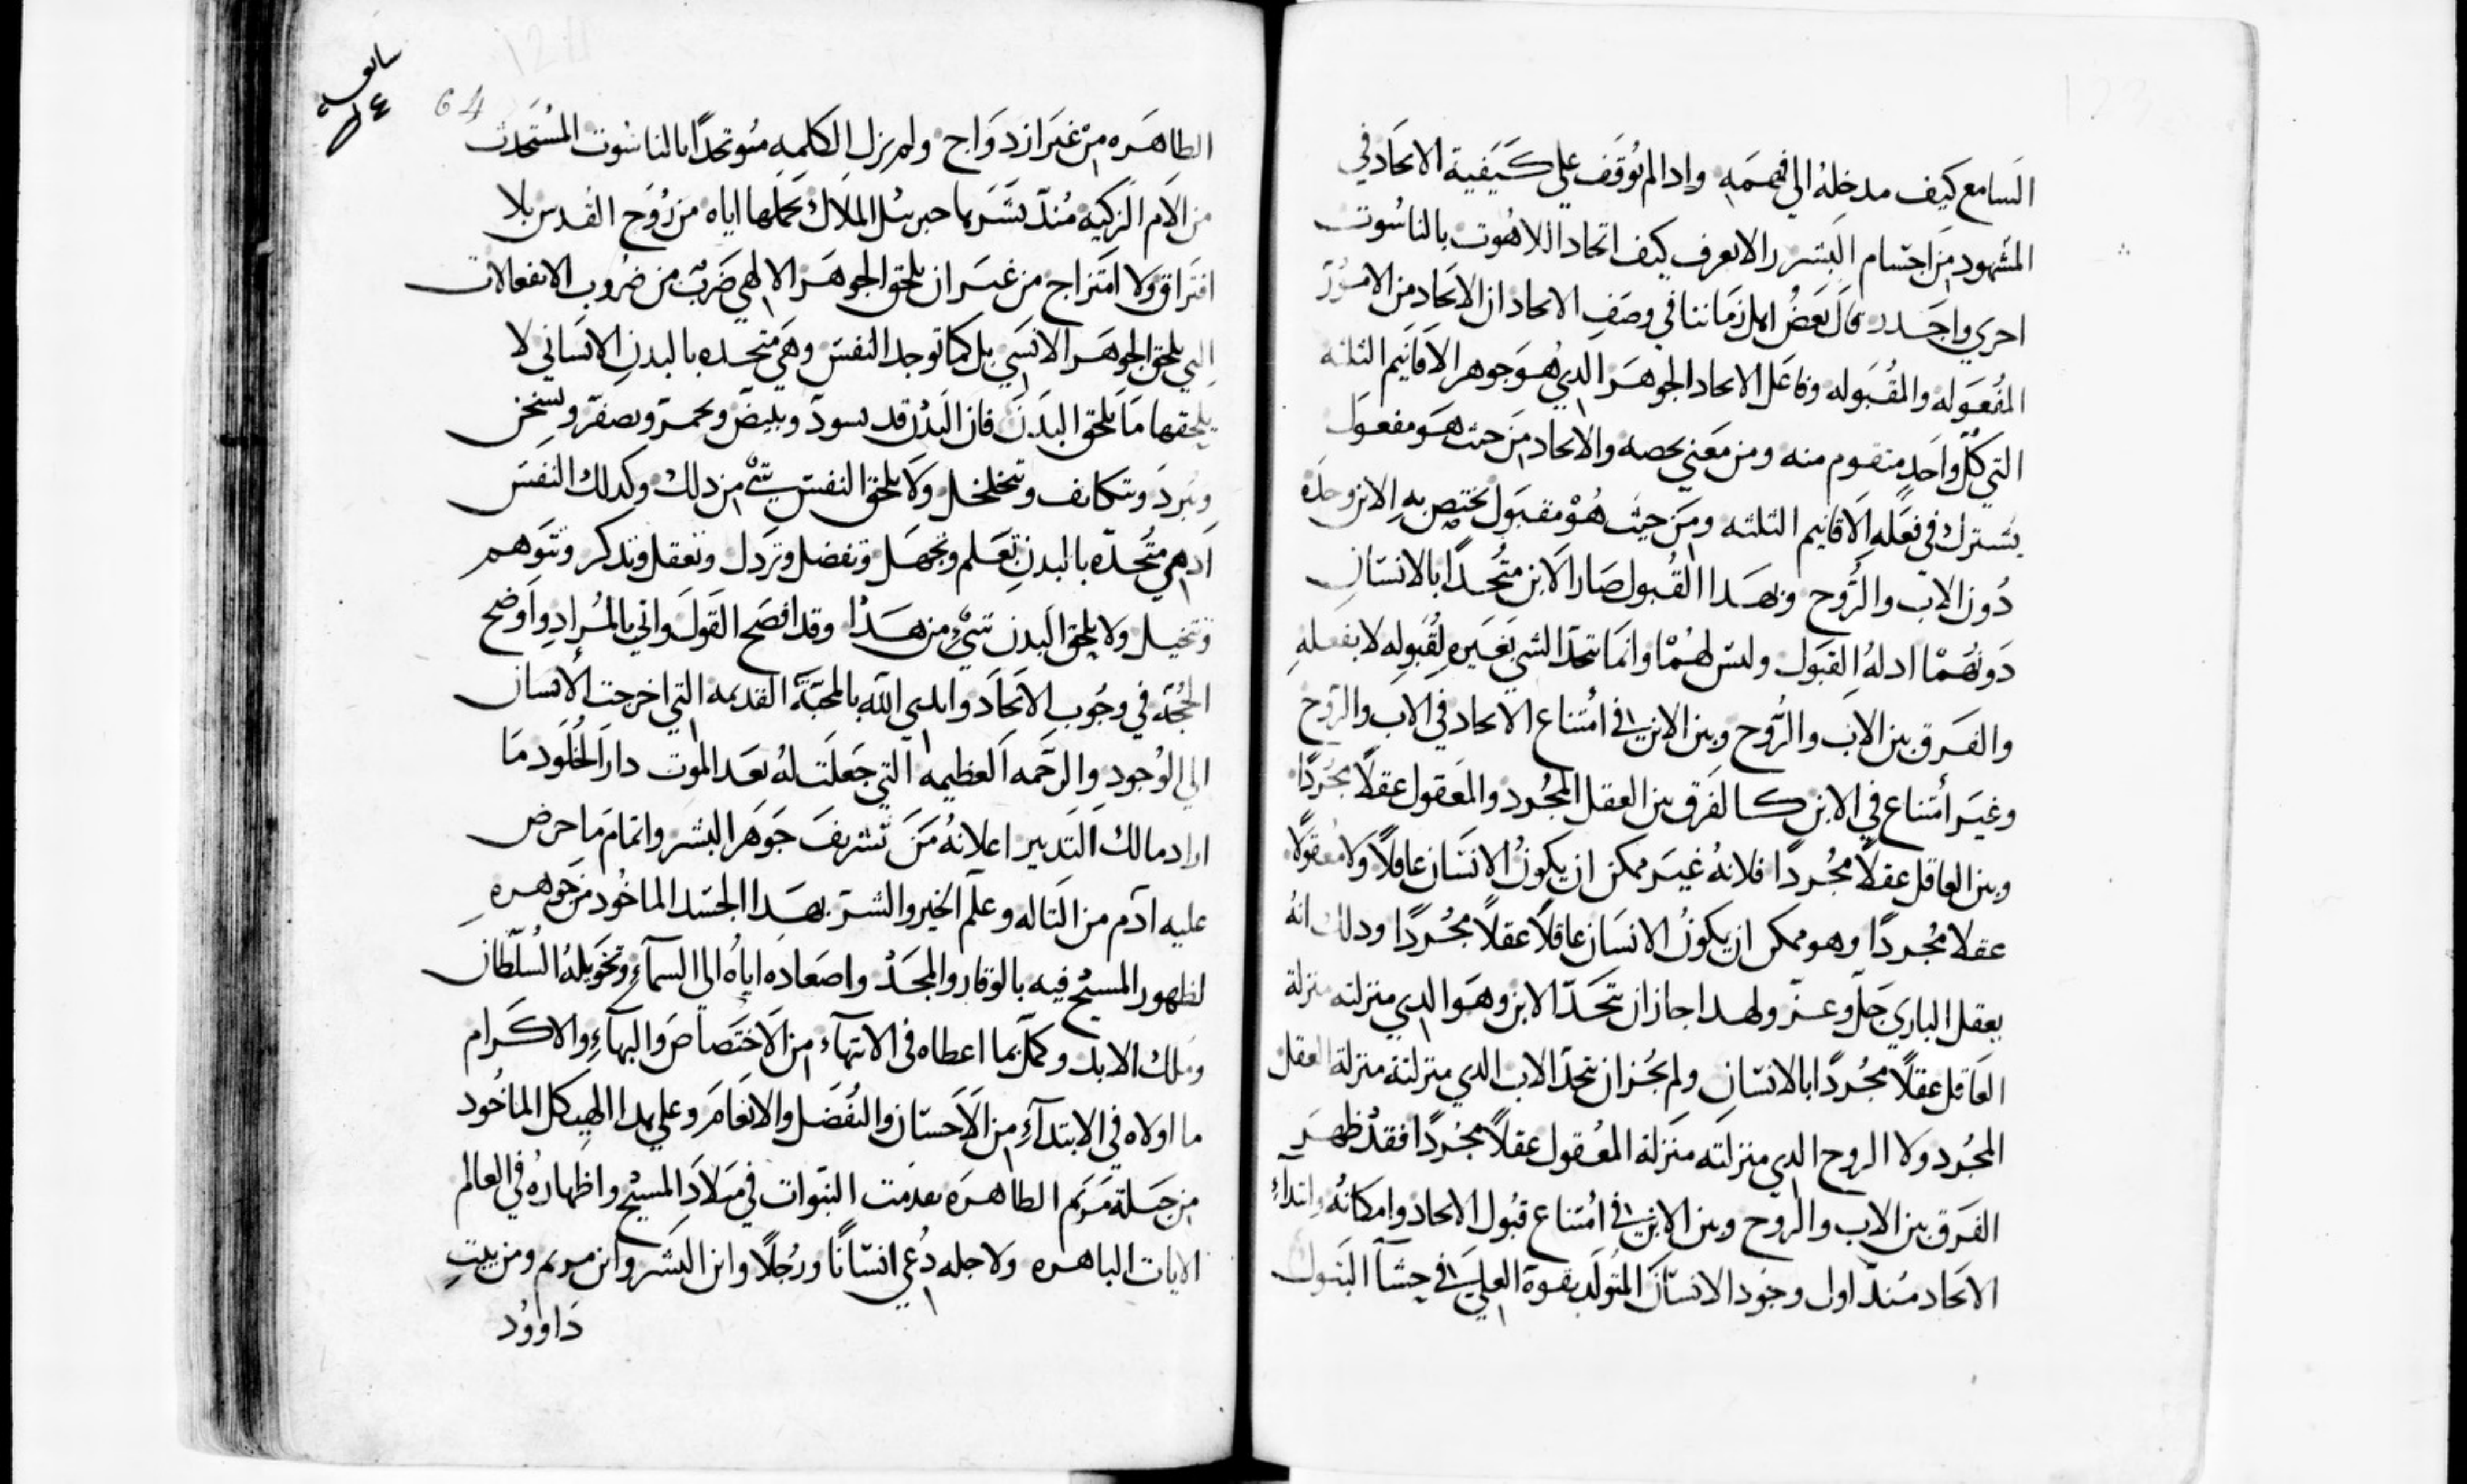 السامع كيف مدخله الي فهمه وادا لم نوقف علي كيفية الاتحاد في
المشهود من اجسام البشر ر الا نعرف كيف اتحاد اللاهوت بالناسوت
احري واجدر قال بعض اهل زماننا في وصف الاتحاد ان الاتحاد من الامور
المفعوله والمقبوله وفاعل الاتحاد الجوهر الدي هو جوهر الاقانيم الثلثه
التي كل واحد متقوم منه ومن معني يخصه والاتحاد من حيث هو مفعول
يشترك في فعله الاقانيم الثلثه ومن حيث هو مقبول يختص به الابن وحده
دون الاب والروح وبهدا القبول صار الابن متحدًا بالانسان
دونهما اد له القبول وليس لهما وانما يتحد الشي بغيره لقبوله لا بفعله
والفرق بين الاب والروح وبين الابن في امتناع الاتحاد في الاب والروح
وغير امتناع في الابن كالفرق بين العقل المجرد والمعقول عقلاً مجردًا
وبين العاقل عقلاً مجردًا فلانه غير ممكن ان يكون الانسان عاقلاً ولا معقولاً
عقلا مجردًا وهو ممكن ان يكون الانسان عاقلاً عقلاً مجردًا ودلك انه
يعقل الباري جل وعز ولهدا جاز ان يتحد الابن وهو الدي منزلته منزلة
العاقل عقلاً مجردًا بالانسان ولم يجز ان يتحد الاب الدي منزلته منزلة العقل
المجرد ولا الروح الدي منزلته منزلة المعقول عقلاً مجردًا فقد ظهر
الفرق بين الاب والروح وبين الابن في امتناع قبول الاتحاد وامكانه وابتداء
الاتحاد مند اول وجود الانسان المتولد بقوة العلي في حشا البتول
64
٦٤
الطاهره من غير ازدواج ولم يزل الكلمه متوحدًا بالناسوت المستحدث
من الام الزكيه مند بشرها جبرييل الملاك بحملها اياه من روح القدس بلا
افتراق ولا امتزاج من غير ان يلحق الجوهر الالهي ضرب من ضروب الانفعالات
التي يلحق الجوهر الانسي بل كما توجد النفس وهي متحده بالبدن الانساني لا
يلحقها ما يلحق البدن فان البدن قد يسود ويبيض ويحمر ويصفر ويسخن
ويبرد ويتكاثف ويتخلخل ولا يلحق النفس شي من دلك وكدلك النفس
اد هي متحده بالبدن تعلم وتجهل وتفضل وتردل وتعقل وتدكر وتتوهم
وتتخيل ولا يلحق البدن شي من هدا وقد افصح القول واتي بالمراد واوضح
الحجة في وجوب الاتحاد وابدي الله بالمحبة القديمه التي اخرجت الانسان
الي الوجود والرحمه العظيمه التي جعلت له بعد الموت دار الخلود ما
اراد مالك التدبير اعلانه من تشريف جوهر البشر واتمام ما حرض
عليه آدم من التاله وعلم الخير والشر بهدا الجسد الماخود من جوهره
لظهور المسيح فيه بالوقار والمجد واصعاده اياه الي السماء وتخويله السلطان
وملك الابد وكمل بما اعطاه في الانتهاء من الاختصاص والبهاء والاكرام
ما اولاه في الابتداء من الاحسان والتفضل والانعام وعلي هدا الهيكل الماخود
من جبلة مريم الطاهره تقدمت النبوات في ميلاد المسيح واظهاره في العالم
الايات الباهره ولاجله دعي انسانًا ورجلاً وابن البشر وابن مريم ومن بيت
داوود